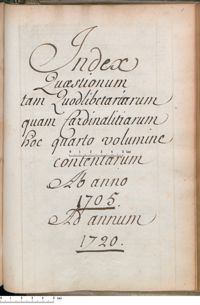 Index
Quæstionum
tam Quodlibetariarum
quam Cardinalitiarum
hoc quarto volumine
contentarum
Ab anno
1705.
Ad annum
1720.